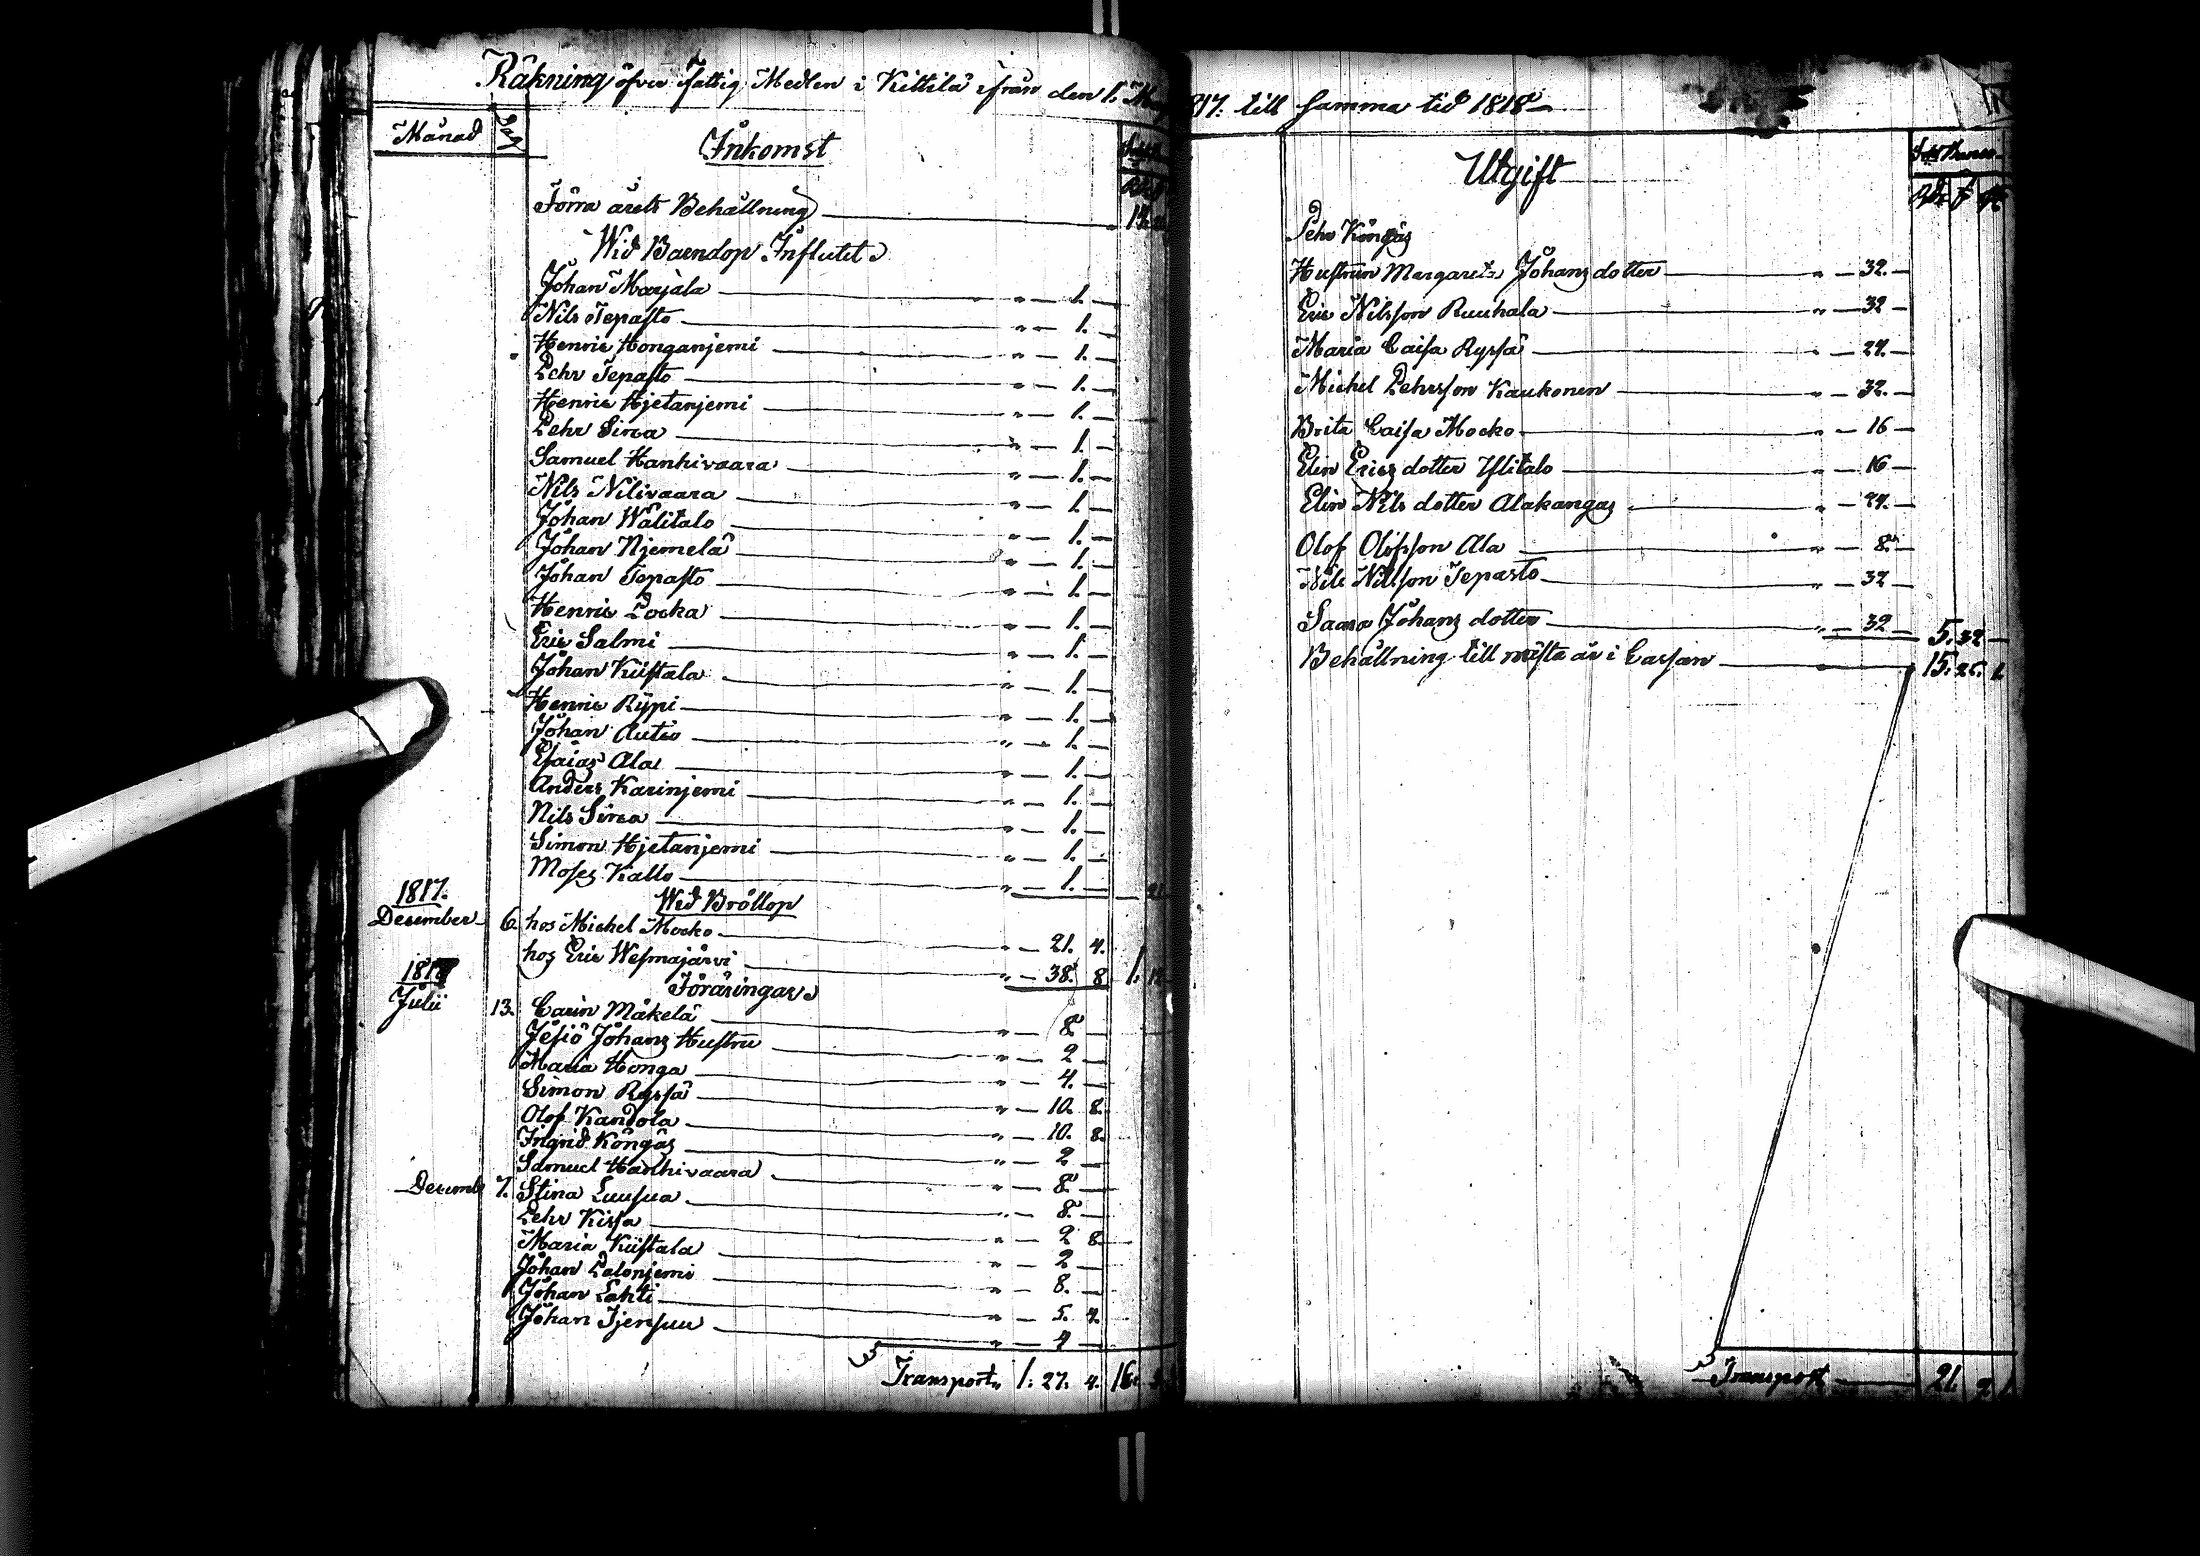 Räkning öfver Fattig Medlen i Kittilä ifrån den 1. May
1817. till samma tid 1818
Månad Dag Inkomst
Förra årets Behållning
Wid Barndop Influtet
Johan Marjala " — 1. —
Nils Tepasto " — 1. —
Henric Honganjemi " — 1. —
Pehr Tepasto " — 1. —
Henric Hjetanjemi " — 1. —
Pehr Sirca " — 1. —
Samuel Hanhivaara " — 1. —
Nils Nilivaara " — 1. —
Johan Wälitalo " — 1. —
Johan Njemelä " — 1. —
Johan Tepasto " — 1. —
Henric Pocka " — 1. —
Eric Salmi " — 1. —
Johan Kiistala " — 1. —
Henric Rypi " — 1. —
Johan Autio " — 1. —
Esaias Ala " — 1. —
Anders Karinjemi " — 1. —
Nils Sirca " — 1. —
Simon Hjetanjemi " — 1. —
Moses Kallo " — 1. —
Wid Bröllop
1817.
December 6. hos Michel Mocko " — 21. 4.
hos Eric Wesmajärvi " — 38. 8
Föräringar
Julii 13. Carin Mäkelä " — 8 —
Jesiö Johans Hustru " — 2 —
Maria Honga " — 4. —
Simon Ryssä " — 10. 8.
Olof Kandola " — 10. 8.
Ingrid Köngäs " — 2 —
Samuel Hanhivaara " — 8. —
Decemb 7. Stina Luusua " — 8. —
Pehr Kissa " — 2 8.
Maria Kiistala " — 2 —
Johan Palonjemi " — 8. —
Johan Lahti " — 5. 4.
Johan Tjensuu " — 4 —
Transport 1. 27. 4. 16.
Utgift
Pehr Köngäs
Hustrun Margareta Johans dotter " — 32. —
Eric Nilsson Ruuhala " — 32 —
Maria Caisa Ryssä " — 24. —
Michel Pehrsson Kaukonen " — 32. —
Brita Caisa Mocko " — 16 —
Elin Erics dotter Ylitalo " — 16 —
Elin Nils dotter Alakangas " — 24. —
Olof Olofsson Ala " — 8. —
Nils Nilsson Tepasto " — 32 —
Saara Johans dotter " — 32 — 5. 32 —
Behållning till nästa år i Cassan 15. 26.
Transport 21.